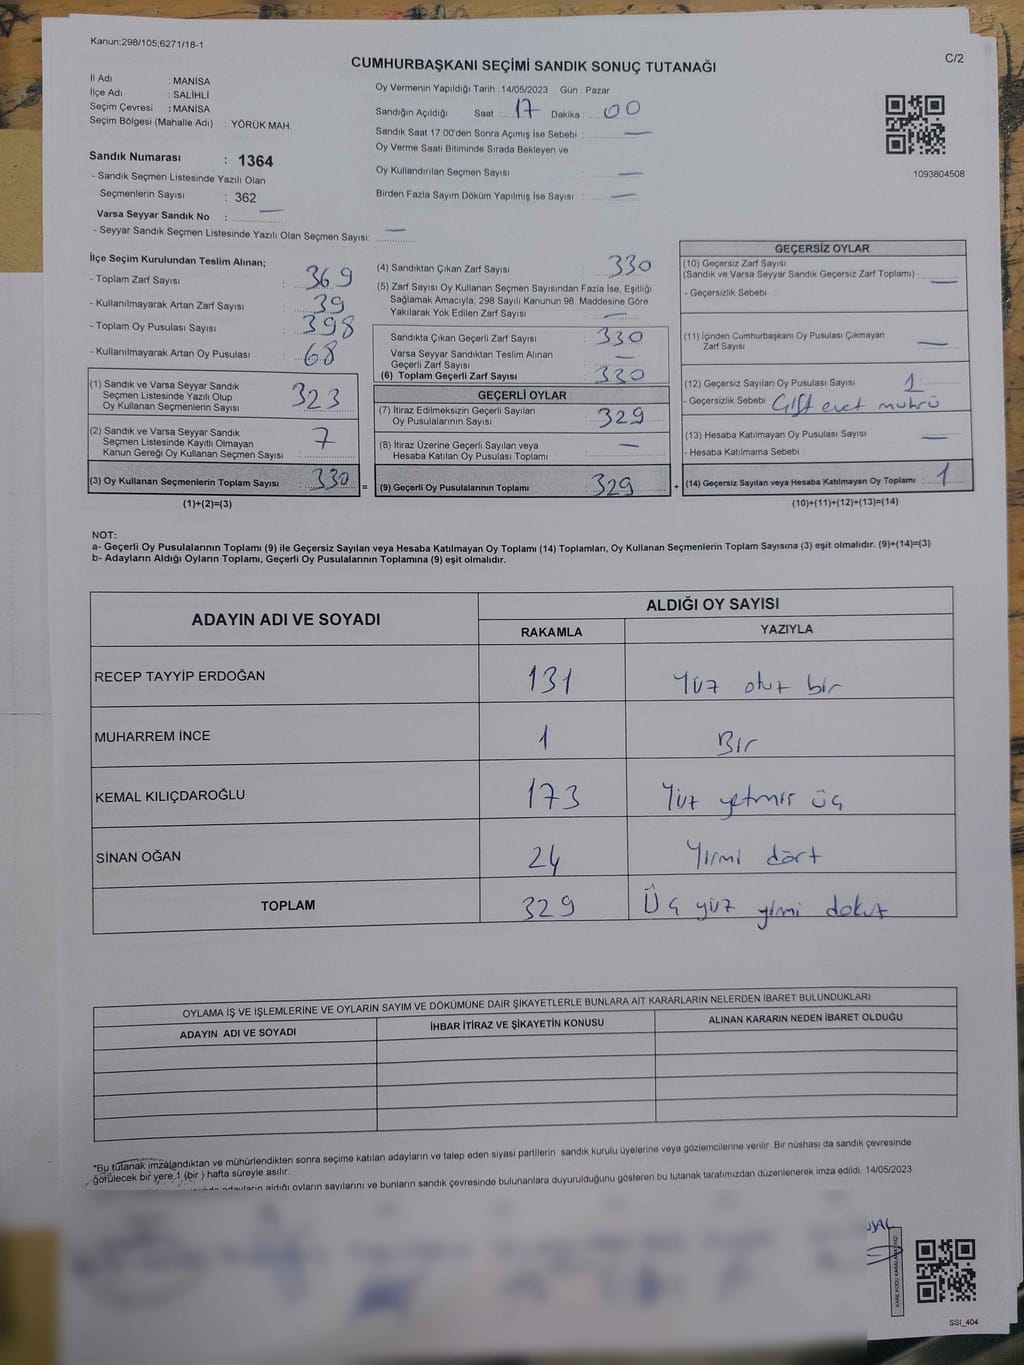 Kanun:298/105;6271/18-1
C/2
CUMHURBAŞKANI SEÇİMİ SANDIK SONUÇ TUTANAĞI
İl Adı : MANİSA
İlçe Adı : SALİHLİ
Seçim Çevresi : MANİSA
Seçim Bölgesi (Mahalle Adı) : YÖRÜK MAH.
Sandık Numarası : 1364
- Sandık Seçmen Listesinde Yazılı Olan
Seçmenlerin Sayısı : 362
Varsa Seyyar Sandık No : —
- Seyyar Sandık Seçmen Listesinde Yazılı Olan Seçmen Sayısı: —
Oy Vermenin Yapıldığı Tarih : 14/05/2023 Gün : Pazar
Sandığın Açıldığı Saat : 17 Dakika : 00
Sandık Saat 17:00'den Sonra Açımış İse Sebebi : —
Oy Verme Saati Bitiminde Sırada Bekleyen ve
Oy Kullandırılan Seçmen Sayısı : —
Birden Fazla Sayım Döküm Yapılmış İse Sayısı : —
1093804508
İlçe Seçim Kurulundan Teslim Alınan;
- Toplam Zarf Sayısı : 369
- Kullanılmayarak Artan Zarf Sayısı : 39
- Toplam Oy Pusulası Sayısı : 398
- Kullanılmayarak Artan Oy Pusulası : 68
(1) Sandık ve Varsa Seyyar Sandık
Seçmen Listesinde Yazılı Olup
Oy Kullanan Seçmenlerin Sayısı : 323
(2) Sandık ve Varsa Seyyar Sandık
Seçmen Listesinde Kayıtlı Olmayan
Kanun Gereği Oy Kullanan Seçmen Sayısı : 7
(3) Oy Kullanan Seçmenlerin Toplam Sayısı : 330 =
(1)+(2)=(3)
(4) Sandıktan Çıkan Zarf Sayısı : 330
(5) Zarf Sayısı Oy Kullanan Seçmen Sayısından Fazla İse, Eşitliği
Sağlamak Amacıyla; 298 Sayılı Kanunun 98. Maddesine Göre
Yakılarak Yok Edilen Zarf Sayısı : —
Sandıkta Çıkan Geçerli Zarf Sayısı : 330
Varsa Seyyar Sandıktan Teslim Alınan
Geçerli Zarf Sayısı : —
(6) Toplam Geçerli Zarf Sayısı : 330
GEÇERLİ OYLAR
(7) İtiraz Edilmeksizin Geçerli Sayılan
Oy Pusulalarının Sayısı : 329
(8) İtiraz Üzerine Geçerli Sayılan veya
Hesaba Katılan Oy Pusulası Toplamı : —
(9) Geçerli Oy Pusulalarının Toplamı : 329 +
GEÇERSİZ OYLAR
(10) Geçersiz Zarf Sayısı
(Sandık ve Varsa Seyyar Sandık Geçersiz Zarf Toplamı) : —
- Geçersizlik Sebebi :
(11) İçinden Cumhurbaşkanı Oy Pusulası Çıkmayan
Zarf Sayısı : —
(12) Geçersiz Sayılan Oy Pusulası Sayısı : 1
- Geçersizlik Sebebi : Çift evet mührü
(13) Hesaba Katılmayan Oy Pusulası Sayısı : —
- Hesaba Katılmama Sebebi :
(14) Geçersiz Sayılan veya Hesaba Katılmayan Oy Toplamı : 1
(10)+(11)+(12)+(13)=(14)
NOT:
a- Geçerli Oy Pusulalarının Toplamı (9) ile Geçersiz Sayılan veya Hesaba Katılmayan Oy Toplamı (14) Toplamları, Oy Kullanan Seçmenlerin Toplam Sayısına (3) eşit olmalıdır. (9)+(14)=(3)
b- Adayların Aldığı Oyların Toplamı, Geçerli Oy Pusulalarının Toplamına (9) eşit olmalıdır.
ADAYIN ADI VE SOYADI
ALDIĞI OY SAYISI
RAKAMLA YAZIYLA
RECEP TAYYİP ERDOĞAN 131 Yüz otuz bir
MUHARREM İNCE 1 Bir
KEMAL KILIÇDAROĞLU 173 Yüz yetmiş üç
SİNAN OĞAN 24 Yirmi dört
TOPLAM 329 Üç yüz yirmi dokuz
OYLAMA İŞ VE İŞLEMLERİNE VE OYLARIN SAYIM VE DÖKÜMÜNE DAİR ŞİKAYETLERLE BUNLARA AİT KARARLARIN NELERDEN İBARET BULUNDUKLARI
ADAYIN ADI VE SOYADI İHBAR İTİRAZ VE ŞİKAYETİN KONUSU ALINAN KARARIN NEDEN İBARET OLDUĞU
*Bu tutanak imzalandıktan ve mühürlendikten sonra seçime katılan adayların ve talep eden siyasi partilerin sandık kurulu üyelerine veya gözlemcilerine verilir. Bir nüshası da sandık çevresinde
görülecek bir yere 1 (bir) hafta süreyle asılır.
adayların aldığı oyların sayılarını ve bunların sandık çevresinde bulunanlara duyurulduğunu gösteren bu tutanak tarafımızdan düzenlenerek imza edildi. 14/05/2023
SSI_404